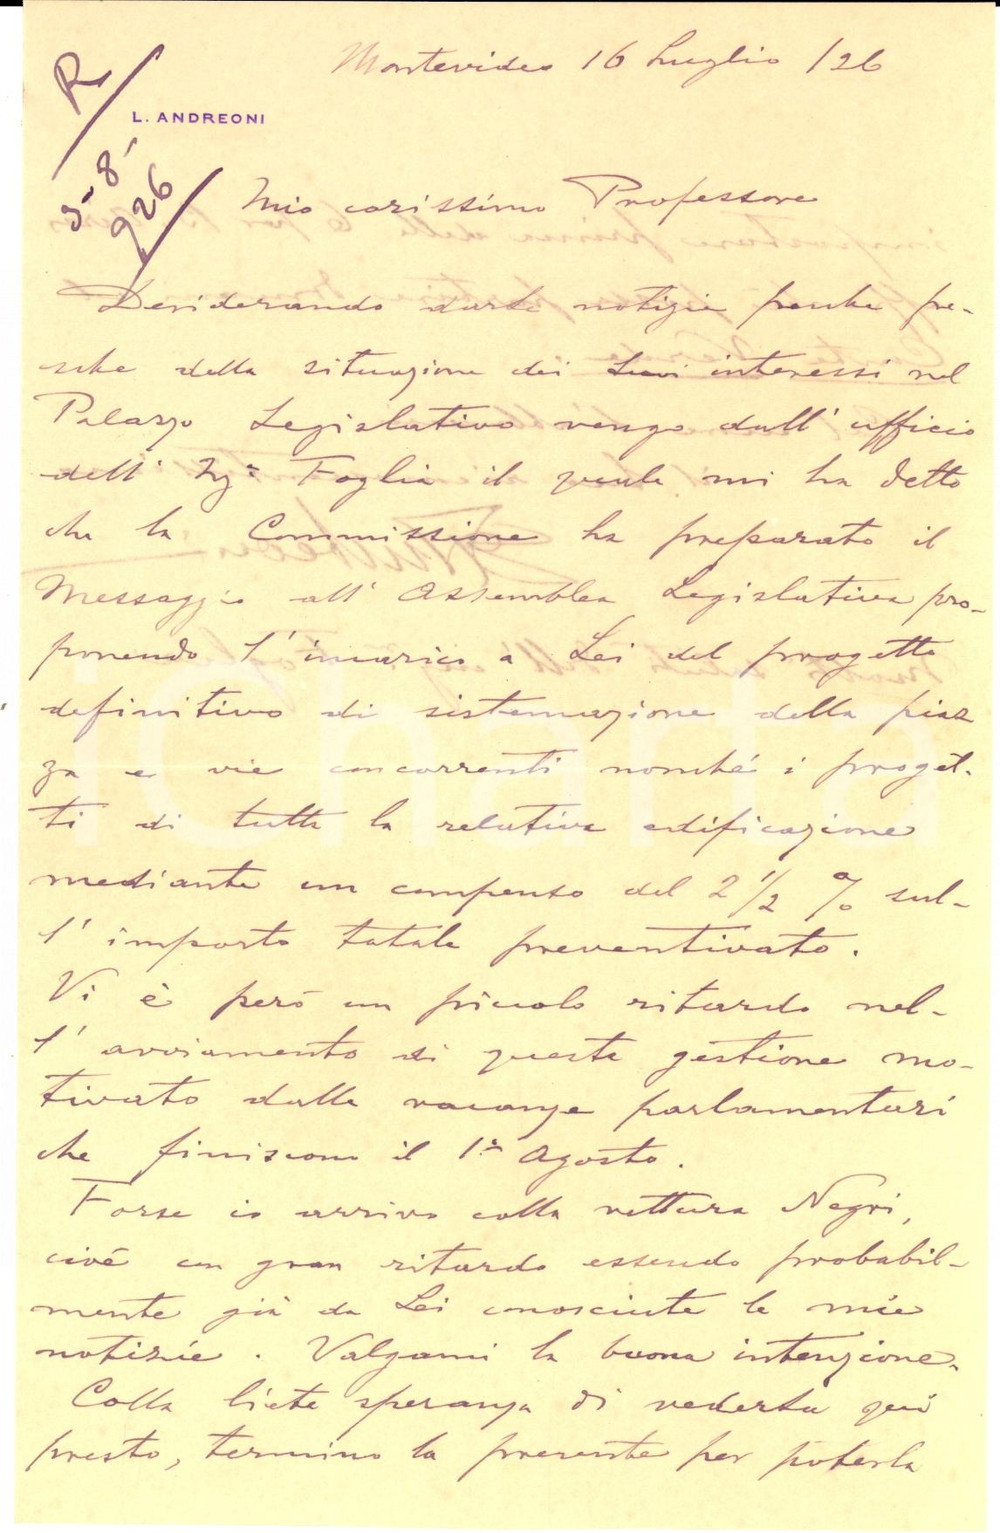 Montevideo 16 Luglio /26
R/
L. ANDREONI
3-8-
926
Mio carissimo Professore
Desiderando darle notizie fresche fre-
sche della situazione dei Suoi interessi nel
Palazzo Legislativo vengo dall' ufficio
dell' Ingre Foglia il quale mi ha detto
che la Commissione ha preparato il
Messaggio all' Assemblea Legislativa pro-
ponendo l' incarico a Lei del progetto
definitivo di sistemazione della piaz
za e vie concorrenti nonché i proget-
ti di tutta la relativa edificazione
mediante un compenso del 2 1/2 % sul-
l' importo totale preventivato.
Vi è però un piccolo ritardo nel-
l' avviamento di questa gestione mo-
tivato dalle vacanze parlamentari
che finiscono il 1º Agosto.
Forse io arrivo colla vettura Negri,
cioé un gran ritardo essendo probabil-
mente già da Lei conosciute le mie
notizie. Valgami la buona intenzione.
Colla lieta speranza di vederla quí
presto, termino la presente per poterla